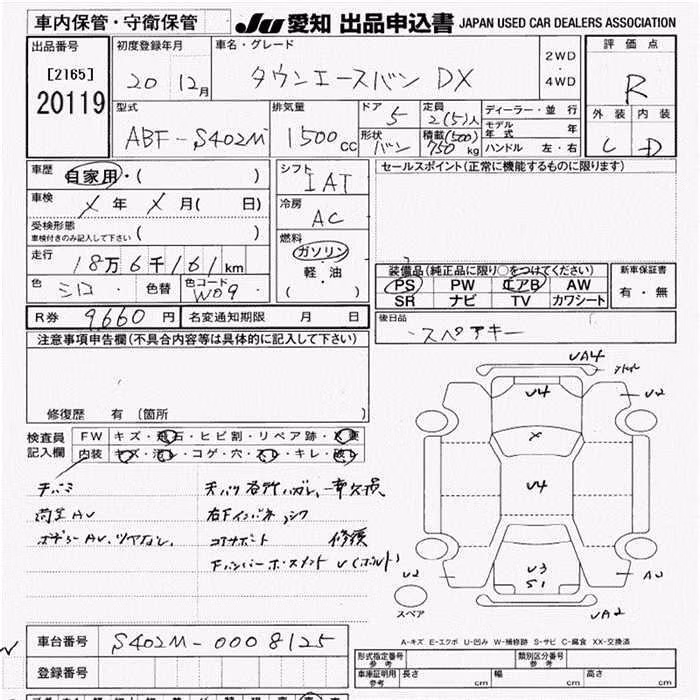 車内保管・守衛保管
JU 愛知 出品申込書 JAPAN USED CAR DEALERS ASSOCIATION
出品番号
[2165]
20119
初度登録年月
20 12月
車名・グレード
タウンエースバン DX
2WD
・
4WD
評価点
R
外装 内装
C D
型式
ABF-S402M
排気量
1500cc
ドア
5
定員
2(5)人
形状
バン
積載(500)
750kg
ディーラー・並行
モデル年式 年
ハンドル 左・右
車歴
自家用・( )
車検
X年 X月( 日)
受検形態
車検付きのみ記入して下さい ( )
走行
18万6千161km
色
シロ
色替
色コード
W09
シフト
IAT
冷房
AC
燃料
ガソリン
・
軽・油
( )
セールスポイント(正常に機能するものに限ります)
装備品(純正品に限り○をつけてください)
PS PW エアB AW
SR ナビ TV カワシート
新車保証書
有・無
R券 9,660円 名変通知期限 月 日
後日品
スペアキー
注意事項申告欄(不具合内容等は具体的に記入して下さい)
修復歴 有 〔箇所 〕
検査員
記入欄
FW キズ・飛石・ヒビ割・リペア跡・X要
内装 キズ・汚レ・コゲ・穴・スレ・キレ・破レ
荷室AU
右下インパネ シワ
コアサポート 修復
UA4
U4
U2
X
U4
U3
S1
U2
A2
UA2
スペア
A-キズ E-エクボ U-凹み W-補修跡 S-サビ C-腐食 XX-交換済
車台番号 S402M-0008125
登録番号
形式指定番号
参考
類別区分番号
参考
車庫証明用
参考
長さ cm 幅 cm 高さ cm